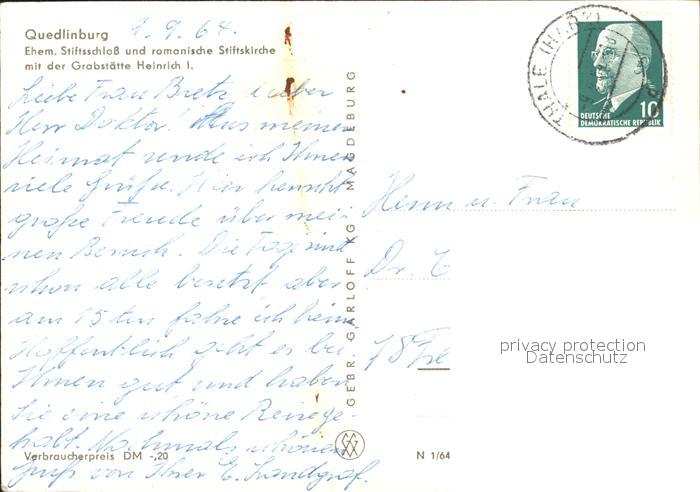 Quedlinburg 9.9.64.
Ehem. Stiftsschloß und romanische Stiftskirche
mit der Grabstätte Heinrich I.
Liebe Frau Bretz, lieber
Herr Doktor! Aus meiner
Heimat sende ich Ihnen
viele Grüße. Hier herrscht
große Freude über mei-
nen Besuch. Die Tage sind
schon alle besetzt, aber
am 15ten fahre ich heim
Hoffentlich geht es bei
Ihnen gut und haben
Sie eine schöne Reise ge-
habt. Nochmals schönen
Gruß von Ihrer E. Landgraf.
Verbraucherpreis DM -,20
GEBR. GARLOFF KG. MAGDEBURG
N 1/64
THALE (HARZ)
DEUTSCHE
DEMOKRATISCHE REPUBLIK
10
Herrn u. Frau
Dr.
78
privacy protection
Datenschutz